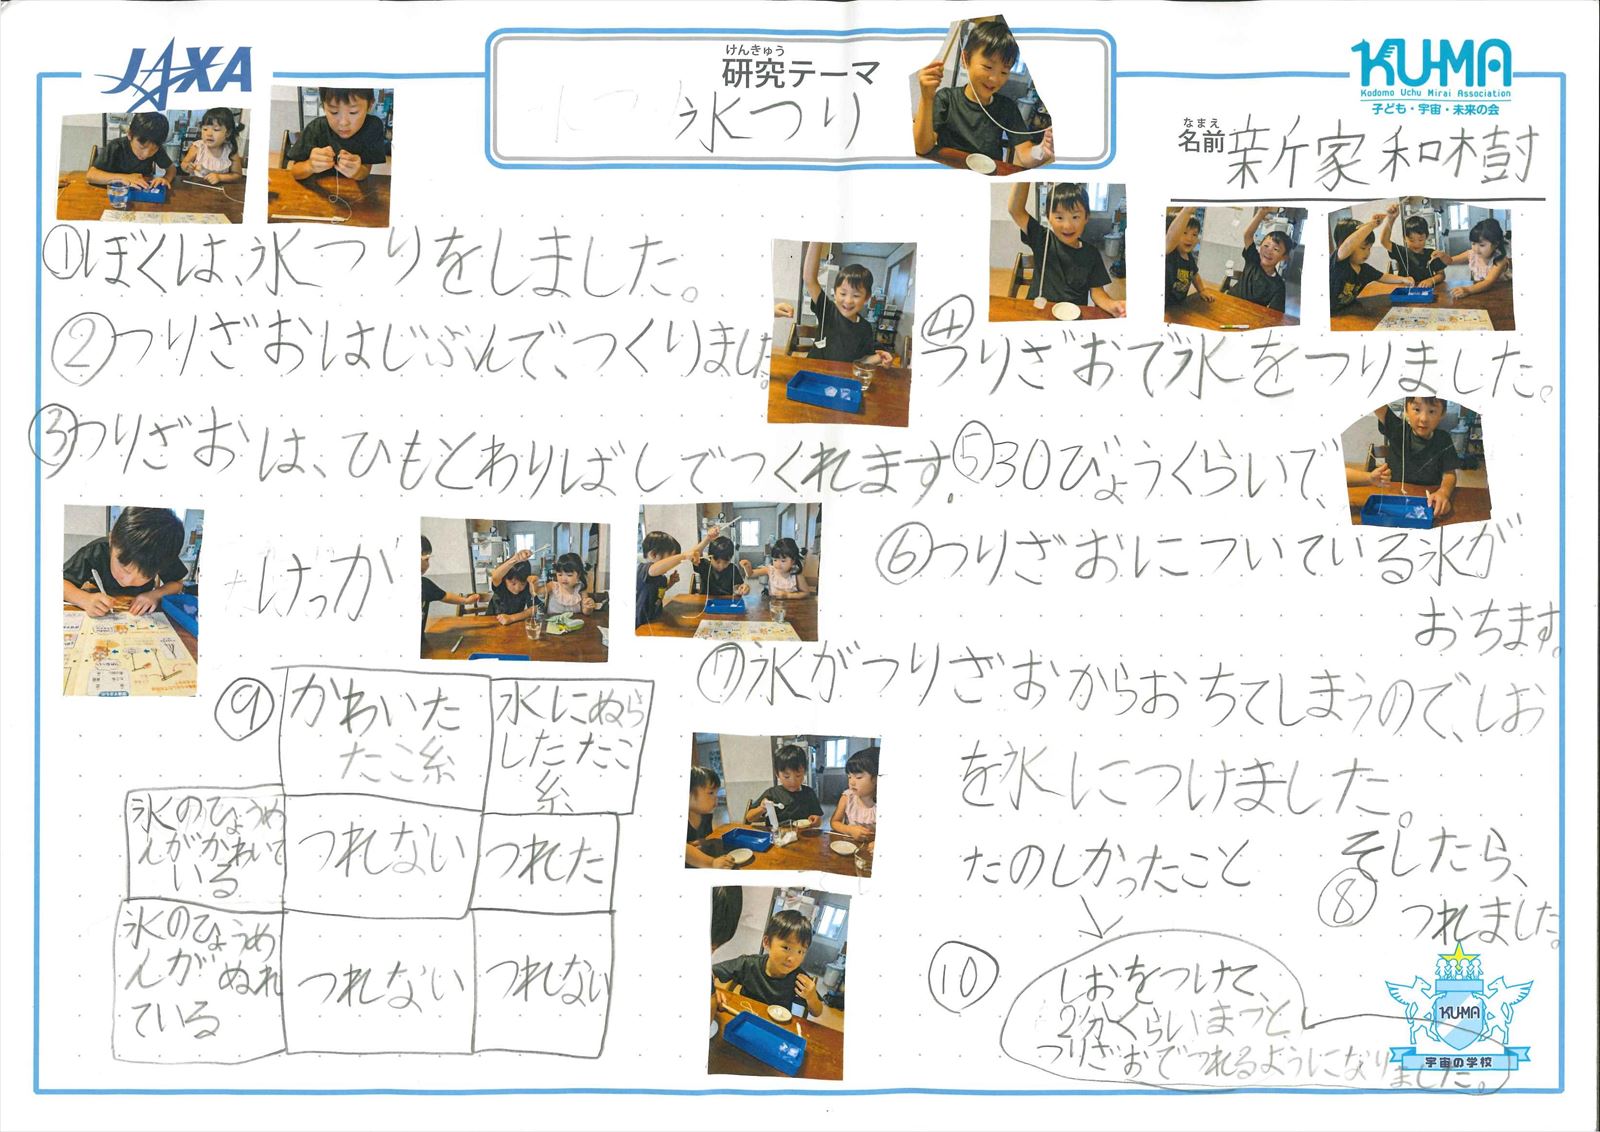 JAXA
けんきゅう
研究テーマ
氷つり
KU-MA
Kodomo Uchu Mirai Association
子ども・宇宙・未来の会
なまえ
名前 新家和樹
①ぼくは、氷つりをしました。
②つりざおはじぶんで、つくりました。
③つりざおは、ひもとわりばしでつくれます。
④つりざおで氷をつりました。
⑤30びょうくらいで、
⑥つりざおについている氷が
おちます。
⑦氷がつりざおからおちてしまうので、しお
を氷につけました。
そしたら、
⑧つれました。
けっか
⑨
かわいた
たこ糸
水にぬら
したたこ
糸
氷のひょうめ
んがかわいて
いる
つれない
つれた
氷のひょうめ
んがぬれ
ている
つれない
つれない
たのしかったこと
⑩
しおをつけて、
2分くらいまつと、
つりざおでつれるようになりました。
KUMA
宇宙の学校